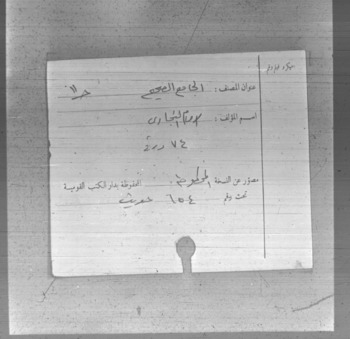 ميكروفيلم
عنوان المصنف: الجامع الصحيح ج ١١
اسم المؤلف: الإمام البخارى
٧٤ ورقة
مصور عن النسخة المخطوطة المحفوظة بدار الكتب القومية
تحت رقم ٦٥٤ حديث